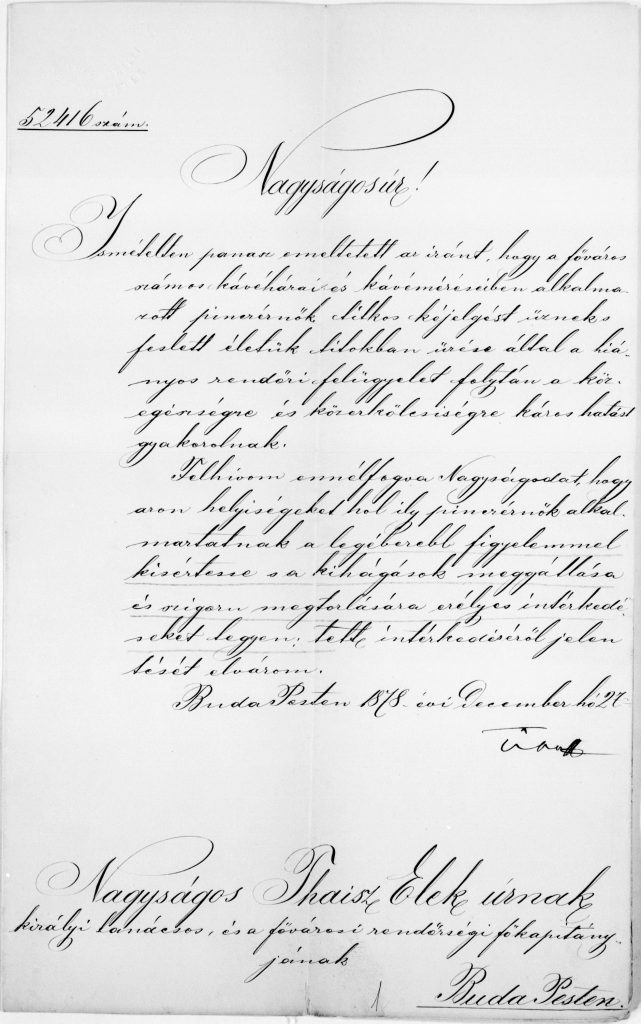 52416 szám.
Nagyságos úr!
Ismételten panasz emeltetett az iránt, hogy a főváros
számos kávéházai és kávéméréseiben alkalma-
zott pinczérnők titkos kéjelgést űznek s
feslett életük titokban űzése által a hiá-
nyos rendőri felügyelet folytán a köz-
egészségre és közerkölcsiségre káros hatást
gyakorolnak.
Felhívom ennélfogva Nagyságodat, hogy
azon helyiségeket hol ily pinczérnők alkal-
maztatnak a legéberebb figyelemmel
kisértesse s a kihágások meggátlása
és szigoru megtorlására erélyes intézkedé-
seket tegyen; tett intézkedéséről jelen
tését elvárom.
Buda Pesten 1878. évi December hó 27-
Nagyságos Thaisz Elek úrnak
királyi tanácsos, és a fővárosi rendőrségi főkapitány-
jának
1
Buda Pesten.